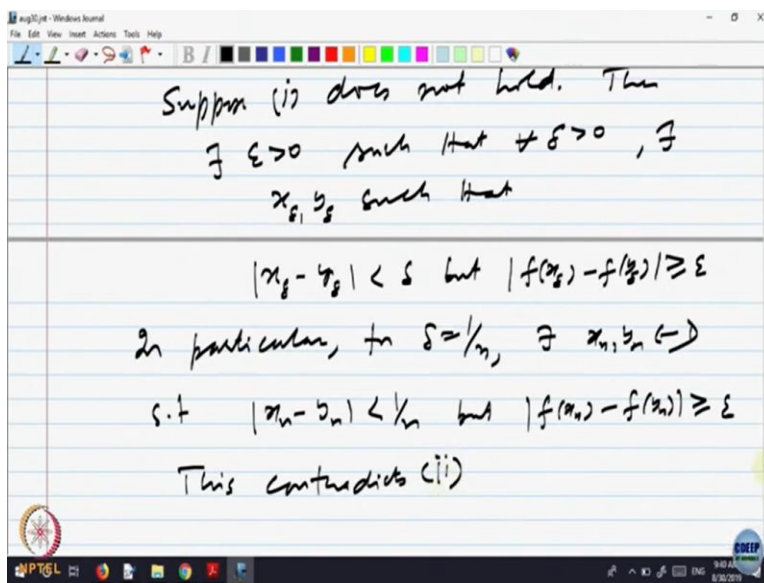 aug30.jnt - Windows Journal
File Edit View Insert Actions Tools Help
B I
Suppose (i) does not hold. Then
∃ ε>0 such that ∀ δ>0, ∃
x_δ, y_δ such that
|x_δ - y_δ| < δ but |f(x_δ) - f(y_δ)| ≥ ε
In particular, for δ=1/n, ∃ x_n, y_n
s.t |x_n - y_n| < 1/n but |f(x_n) - f(y_n)| ≥ ε
This contradicts (ii)
NPTEL
CDEEP
ENG
9:40 AM
8/30/2019